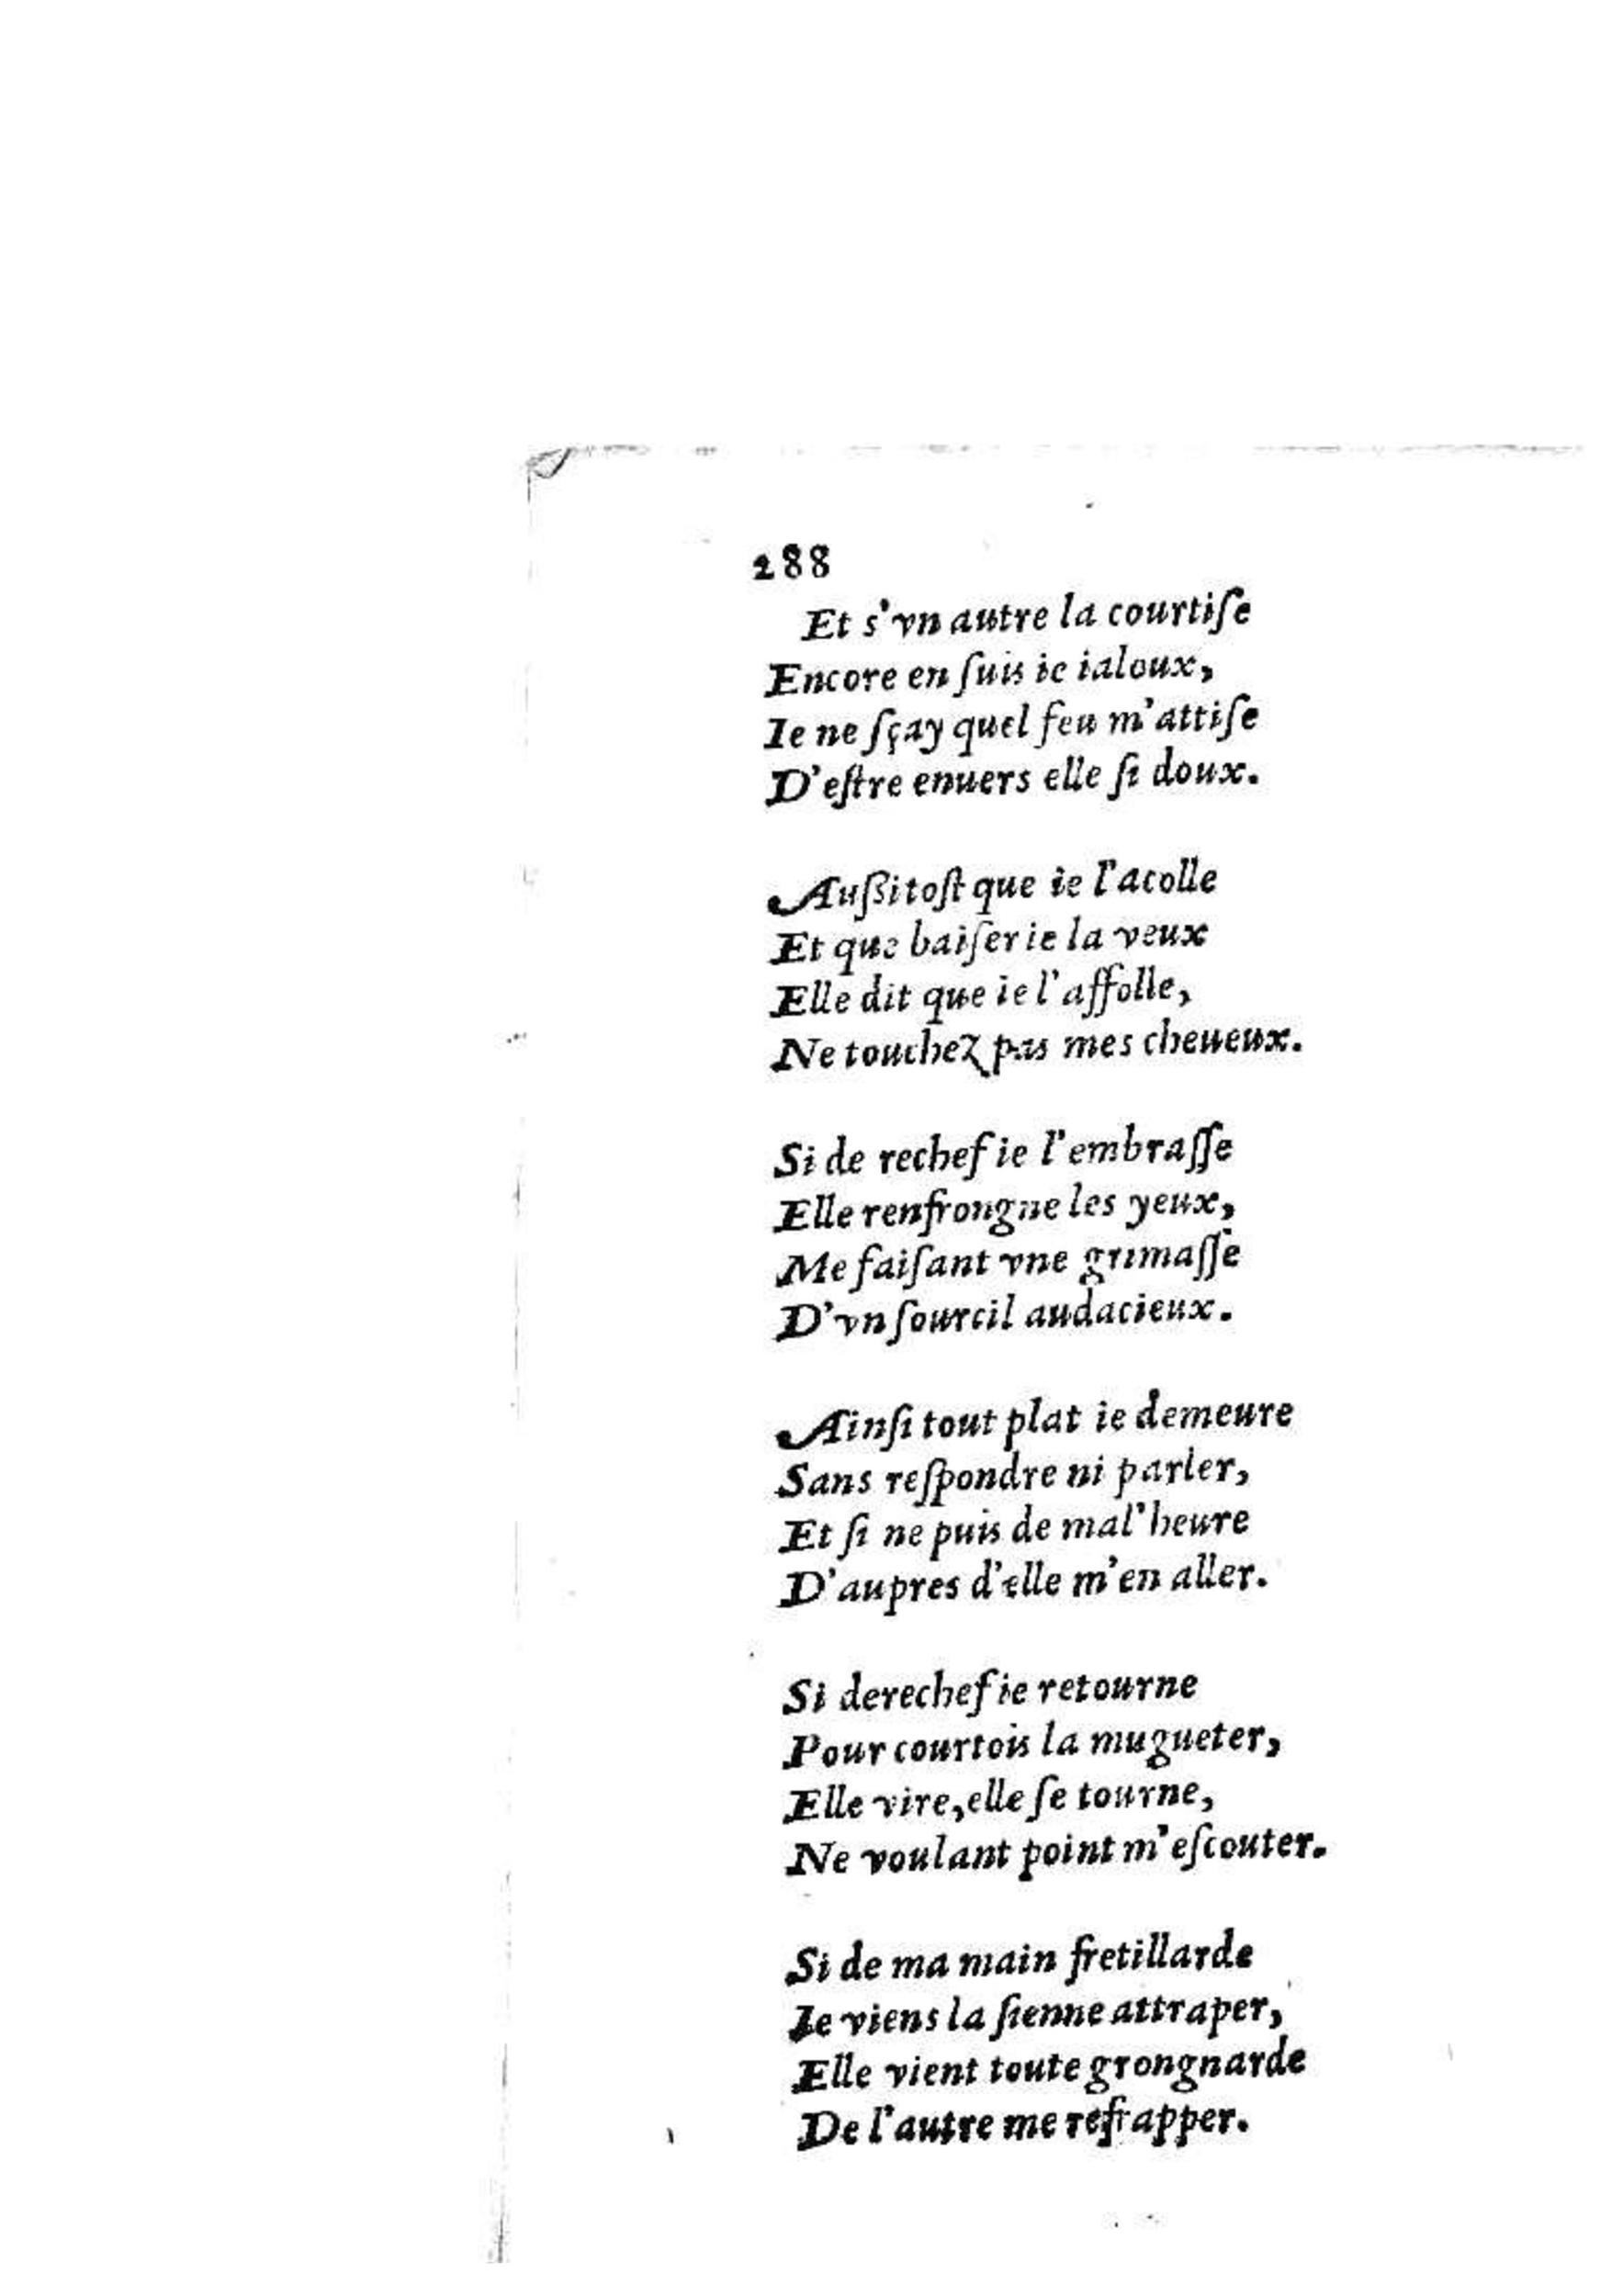 288
Et s'vn autre la courtiſe
Encore en ſuis ie ialoux,
Ie ne ſçay quel feu m'attiſe
D'eſtre enuers elle ſi doux.
Außitoſt que ie l'acolle
Et que baiſer ie la veux
Elle dit que ie l'affolle,
Ne touchez pas mes cheueux.
Si de rechef ie l'embraſſe
Elle renfrongne les yeux,
Me faiſant vne grimaſſe
D'vn ſourcil audacieux.
Ainſi tout plat ie demeure
Sans reſpondre ni parler,
Et ſi ne puis de mal'heure
D'aupres d'elle m'en aller.
Si derechef ie retourne
Pour courtois la mugueter,
Elle vire, elle ſe tourne,
Ne voulant point m'eſcouter.
Si de ma main fretillarde
Ie viens la ſienne attraper,
Elle vient toute grongnarde
De l'autre me refrapper.